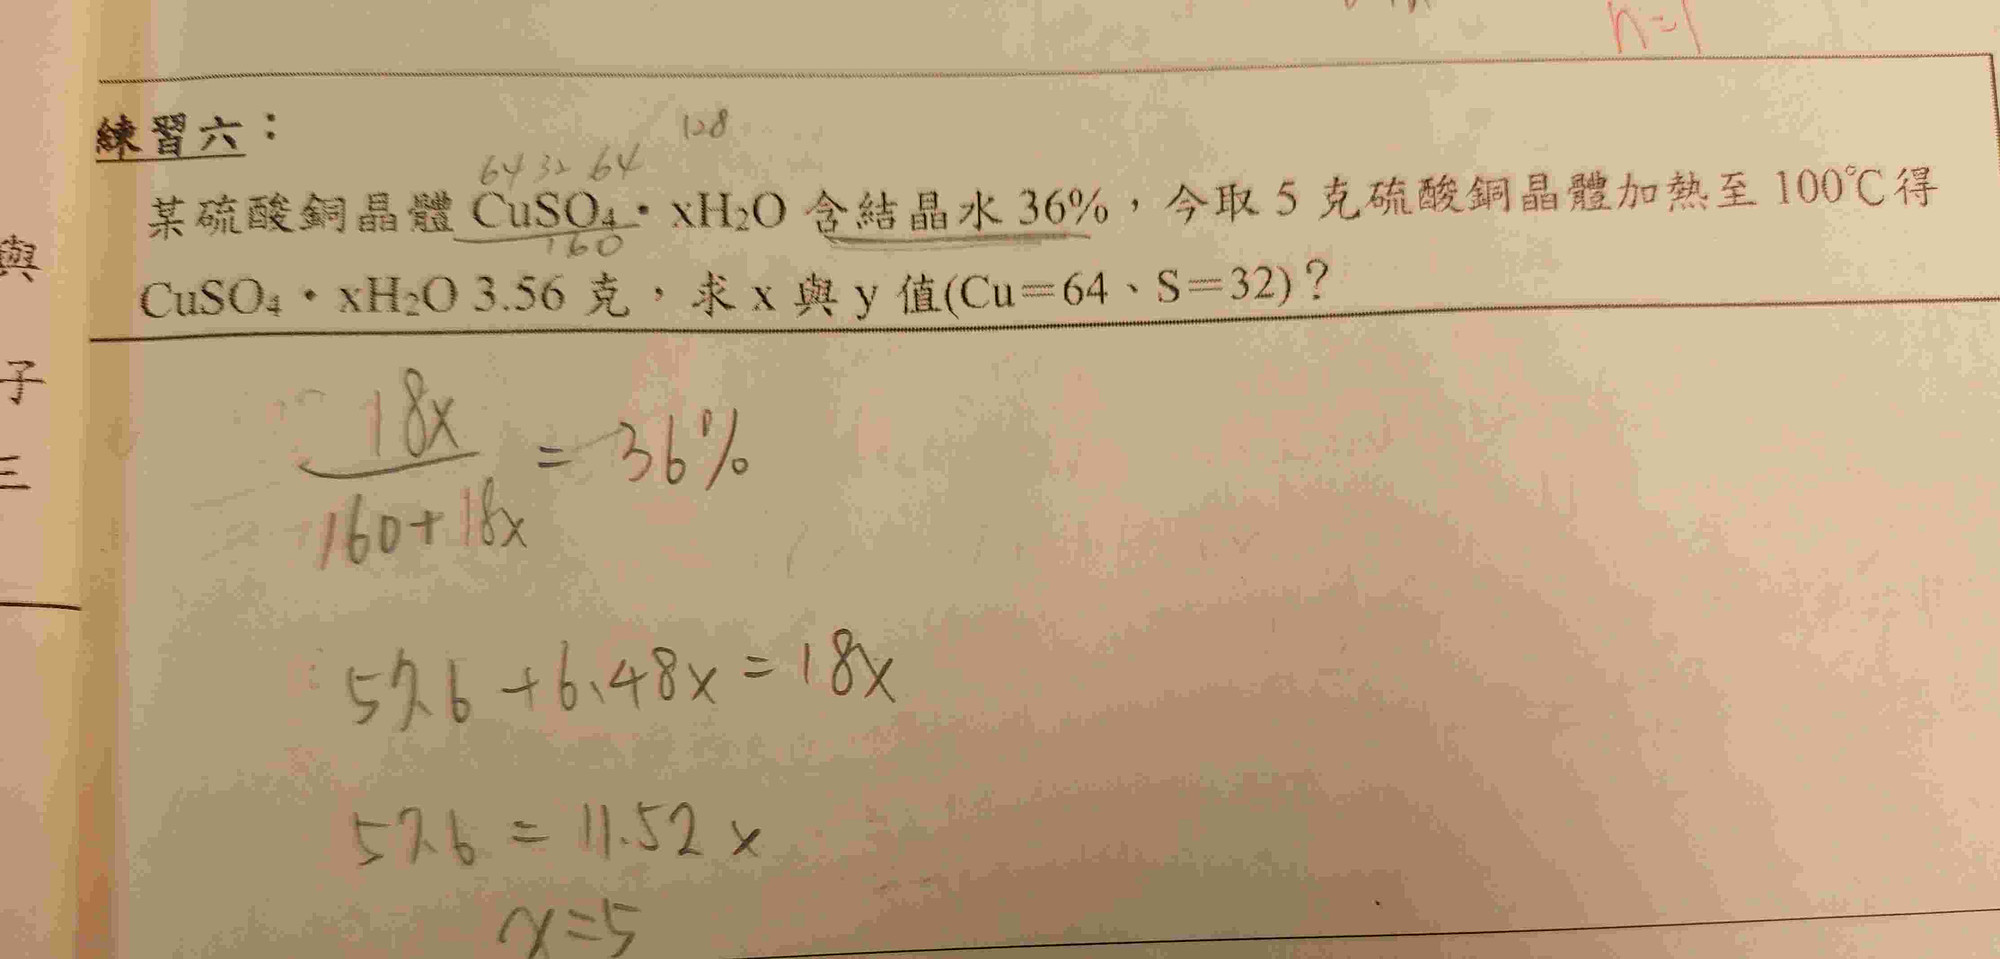 n=1
練習六：
128
64 32 64
某硫酸銅晶體 CuSO₄·xH₂O 含結晶水 36%，今取 5 克硫酸銅晶體加熱至 100℃得
160
CuSO₄·xH₂O 3.56 克，求 x 與 y 值(Cu＝64、S＝32)？
與
子
三
18x
= 36%
160+18x
57.6 +6.48x = 18x
57.6 = 11.52 x
x=5